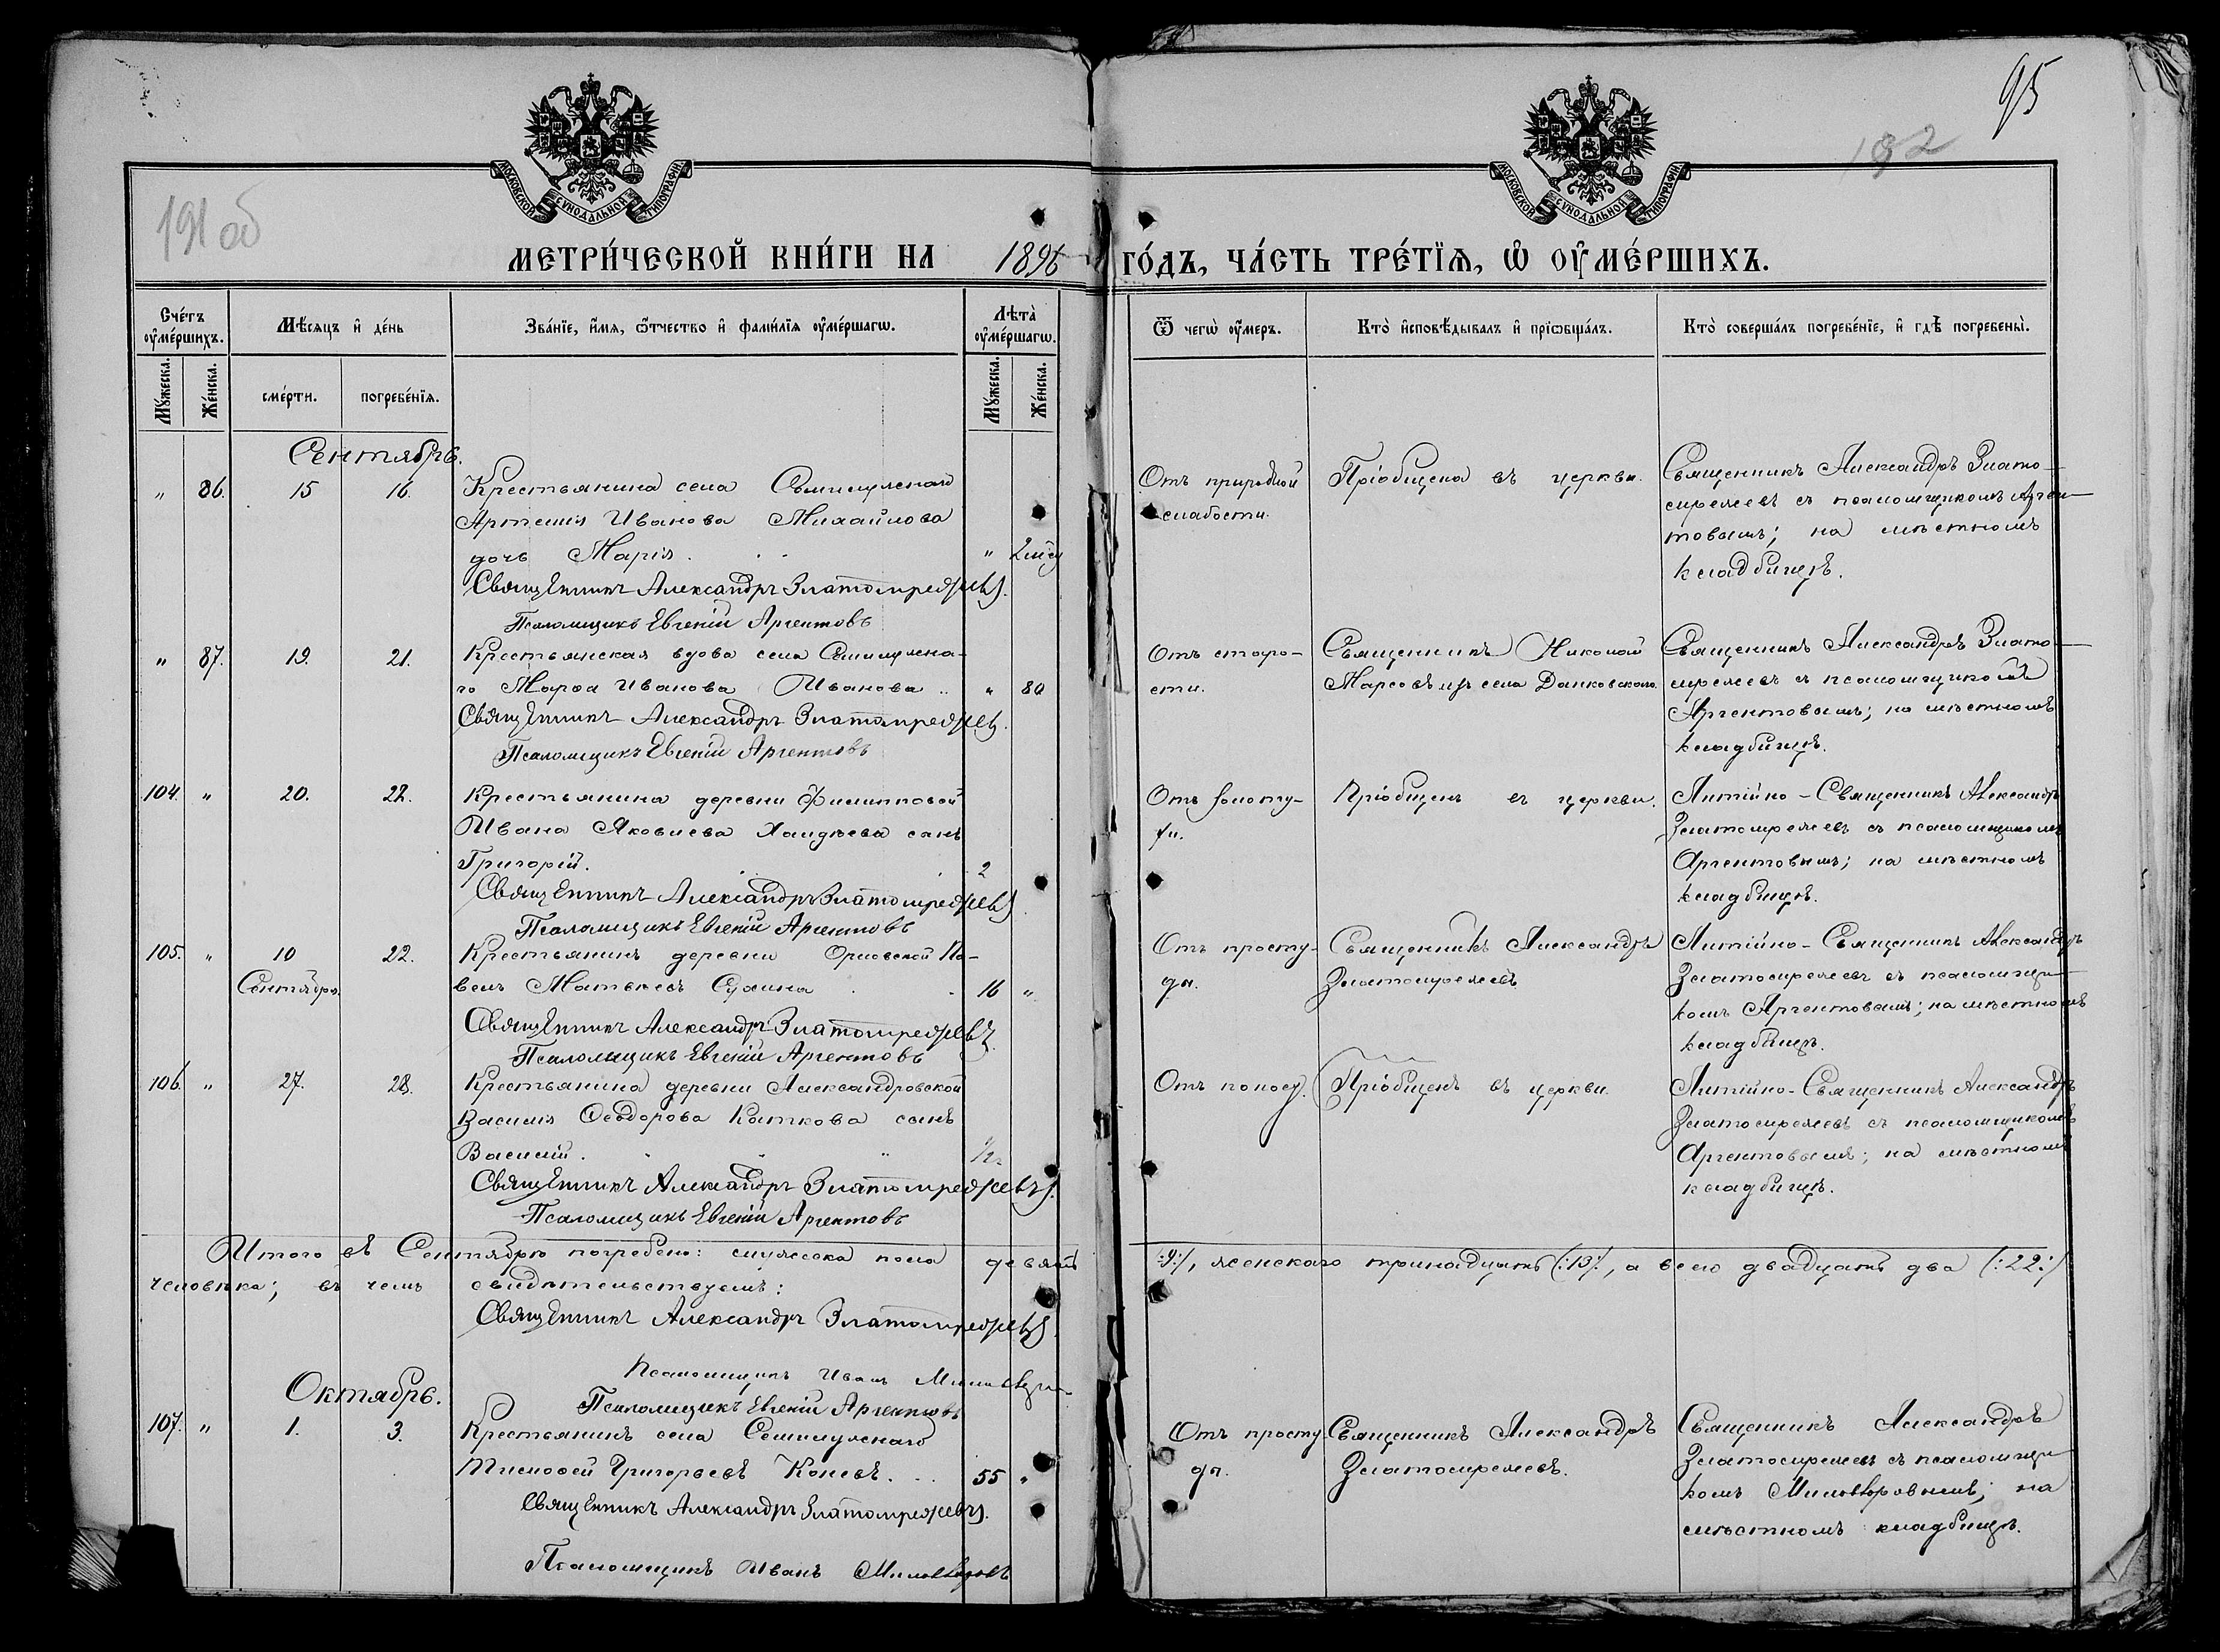 95
182
191 об
МОСКОВСКОЙ СѴНОДАЛЬНОЙ ТИПОГРАФІИ.
МОСКОВСКОЙ СѴНОДАЛЬНОЙ ТИПОГРАФІИ.
МЕТРИ́ЧЕСКОЙ КНИ́ГИ НА 1896 ГО́ДЪ, ЧА́СТЬ ТРЕ́ТЇѦ, Ѡ҆ ОУ҆МЕ́РШИХЪ.
Сче́тъ оу҆ме́ршихъ.
Му́жеска.
Же́нска.
Мѣ́сяцъ и҆ де́нь
сме́рти.
погребе́нїѧ.
Зва́нїе, и҆́мя, ѻ҆́тчество и҆ фами́лїя оу҆ме́ршагѡ.
Лѣ́та оу҆ме́ршагѡ.
Му́жеска.
Же́нска.
Ѿ чегѡ̀ оу҆́меръ.
Кто̀ и҆сповѣ́дывалъ и҆ прїѡбща́лъ.
Кто̀ соверша́лъ погребе́нїе, и҆ гдѣ̀ погребены̀.
Сентябрь.
" 86. 15 16. Крестьянина села Семилужнаго
Артемія Иванова Михайлова
дочь Марія. " 2 мѣс
Священникъ Александръ Златомрежевъ.
Псаломщикъ Евгеній Аргентовъ
Отъ природной
слабости.
Пріобщена въ церкви.
Священникъ Александръ Злато-
мрежевъ съ псаломщикомъ Арген-
товымъ; на мѣстномъ
кладбищѣ.
" 87. 19. 21. Крестьянская вдова села Семилужна-
го Марѳа Иванова Иванова " 80
Священникъ Александръ Златомрежевъ.
Псаломщикъ Евгеній Аргентовъ
Отъ старо-
сти.
Священникъ Николай
изъ села Данковскаго.
Священникъ Александръ Злато-
мрежевъ съ псаломщикомъ
Аргентовымъ; на мѣстномъ
кладбищѣ.
104. " 20. 22. Крестьянина деревни Филипповой
Ивана Яковлева сынъ
Григорій. 2
Священникъ Александръ Златомрежевъ
Псаломщикъ Евгеній Аргентовъ
Отъ золоту-
хи.
Пріобщенъ въ церкви.
Литійно - Священникъ Александръ
Златомрежевъ съ псаломщикомъ
Аргентовымъ; на мѣстномъ
кладбищѣ.
105. " 10 22. Крестьянинъ деревни Орловской Па-
Сентября. велъ Матвѣевъ Сухина 16 "
Священникъ Александръ Златомрежевъ.
Псаломщикъ Евгеній Аргентовъ
Отъ просту-
ды.
Священникъ Александръ
Златомрежевъ
Литійно - Священникъ Александръ
Златомрежевъ съ псаломщи-
комъ Аргентовымъ; на мѣстномъ
кладбищѣ.
106. " 27. 28. Крестьянина деревни Александровской
Василія Ѳеодорова Каткова сынъ
Василій. ½
Священникъ Александръ Златомрежевъ.
Псаломщикъ Евгеній Аргентовъ
Отъ поносу.
Пріобщенъ въ церкви.
Литійно - Священникъ Александръ
Златомрежевъ съ псаломщикомъ
Аргентовымъ; на мѣстномъ
кладбищѣ.
Итого въ Сентябрѣ погребено: мужеска пола девять (:9:), женскаго тринадцать (:13:), а всего двадцать два (:22:)
человѣка; въ чемъ свидѣтельствуемъ:
Священникъ Александръ Златомрежевъ.
Псаломщикъ Иванъ
Псаломщикъ Евгеній Аргентовъ
Октябрь.
107. " 1. 3. Крестьянинъ села Семилужнаго
Тимоѳей Григорьевъ Коневъ. 55 "
Священникъ Александръ Златомрежевъ.
Псаломщикъ Иванъ Миловзоровъ
Отъ просту-
ды.
Священникъ Александръ
Златомрежевъ.
Священникъ Александръ
Златомрежевъ съ псаломщи-
комъ Миловзоровымъ; на
мѣстномъ кладбищѣ.